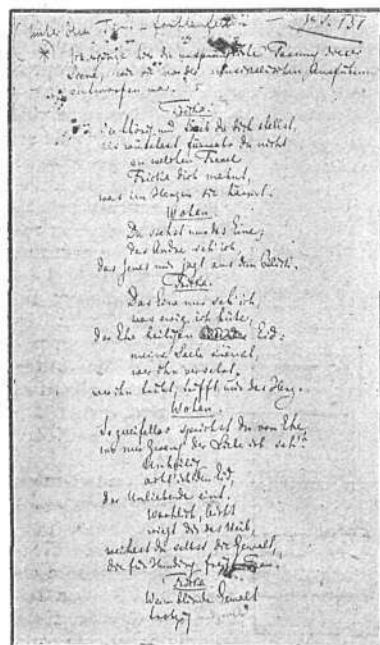 * 
Scene, wie sie vor der musicalischen Ausführung
entworfen war.
Fricka.
So thörig und taub du dich stellst,
als wüsstest fürwahr du nicht,
um welchen Frevel
Fricka dich mahnt,
was im Herzen sie härmt.
Wotan.
Du siehst nur das Eine;
das Andre seh' ich,
das Jenes mir jagt aus dem Blick.
Fricka.
Das Eine nur seh' ich,
was ewig ich hüte,
der Ehe heiligen Eid:
meine Seele kränkt,
wer ihn versehrt,
wer ihn trübt, trifft mir das Herz.
Wotan.
So zweifellos sprichst du von Ehe,
wo nur Zwang der Liebe ich seh'?
Unheilig
acht' ich den Eid,
der Unliebende eint.
Wahrlich, leicht
wiegt dir das Weib,
weihest du selbst die Gewalt,
die für Hunding freite
Fricka
Wenn blinde Gewalt
trotzig